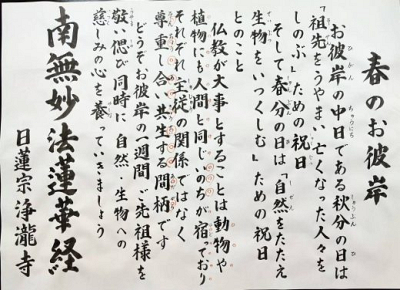 春のお彼岸
お彼岸の中日である秋分の日は
「祖先をうやまい、亡くなった人々を
しのぶ」ための祝日
そして春分の日は「自然をたたえ
生物をいつくしむ」ための祝日
とのこと
仏教が大事とすることは動物や
植物にも人間と同じいのちが宿っており
それぞれ主従の関係ではなく
尊重し合い共生する間柄です
どうぞお彼岸の一週間、ご先祖様を
敬い偲び同時に自然・生物への
慈しみの心を養っていきましょう
南無妙法蓮華経
日蓮宗 浄瀧寺